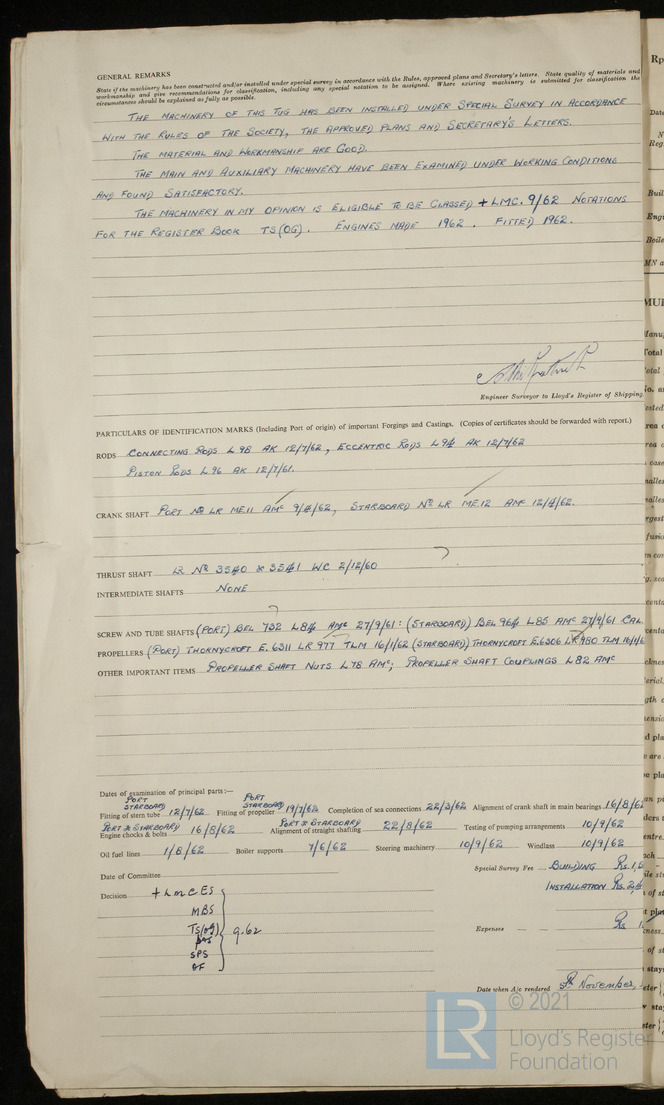 GENERAL REMARKS
State if the machinery has been constructed and/or installed under special survey in accordance with the Rules, approved plans and Secretary's letters. State quality of materials and
workmanship and give recommendations for classification, including any special notation to be assigned. Where existing machinery is submitted for classification the
circumstances should be explained as fully as possible.
THE MACHINERY OF THIS TUG HAS BEEN INSTALLED UNDER SPECIAL SURVEY IN ACCORDANCE
WITH THE RULES OF THE SOCIETY, THE APPROVED PLANS AND SECRETARY'S LETTERS.
THE MATERIAL AND WORKMANSHIP ARE GOOD.
THE MAIN AND AUXILIARY MACHINERY HAVE BEEN EXAMINED UNDER WORKING CONDITIONS
AND FOUND SATISFACTORY.
THE MACHINERY IN MY OPINION IS ELIGIBLE TO BE CLASSED + LMC. 9/62 NOTATIONS
FOR THE REGISTER BOOK TS(OG). ENGINES MADE 1962. FITTED 1962.
Engineer Surveyor to Lloyd's Register of Shipping
PARTICULARS OF IDENTIFICATION MARKS (Including Port of origin) of important Forgings and Castings. (Copies of certificates should be forwarded with report.)
RODS CONNECTING RODS L98 AK 12/7/62, ECCENTRIC RODS L94 AK 12/7/62
PISTON RODS L96 AK 12/7/61.
CRANK SHAFT PORT No LR ME11 AMc 9/4/62, STARBOARD No LR ME12 AMc 12/4/62.
THRUST SHAFT LR No 3540 & 3541 WC 2/12/60
INTERMEDIATE SHAFTS NONE
SCREW AND TUBE SHAFTS (PORT) BEL 732 L84 AMc 27/9/61: (STARBOARD) BEL 964 L85 AMc 27/9/61 CAL
PROPELLERS (PORT) THORNYCROFT E.6311 LR 977 TLM 16/1/62 (STARBOARD) THORNYCROFT E.6306 LR 980 TLM 16/1/6
OTHER IMPORTANT ITEMS PROPELLER SHAFT NUTS L78 AMc; PROPELLER SHAFT COUPLINGS L82 AMc
Dates of examination of principal parts:—
PORT STARBOARD PORT STARBOARD
Fitting of stern tube 12/7/62 Fitting of propeller 19/7/62 Completion of sea connections 22/3/62 Alignment of crank shaft in main bearings 16/8/62
PORT & STARBOARD PORT & STARBOARD
Engine chocks & bolts 16/8/62 Alignment of straight shafting 22/8/62 Testing of pumping arrangements 10/9/62
Oil fuel lines 1/8/62 Boiler supports 7/6/62 Steering machinery 10/9/62 Windlass 10/9/62
Date of Committee
Special Survey Fee BUILDING Rs.
Decision + LMC ES
INSTALLATION Rs.
MBS
TS(og) 9.62
Expenses Rs
SPS
OF
Date when A/c rendered November,
© 2021
LR
Lloyd's Register
Foundation